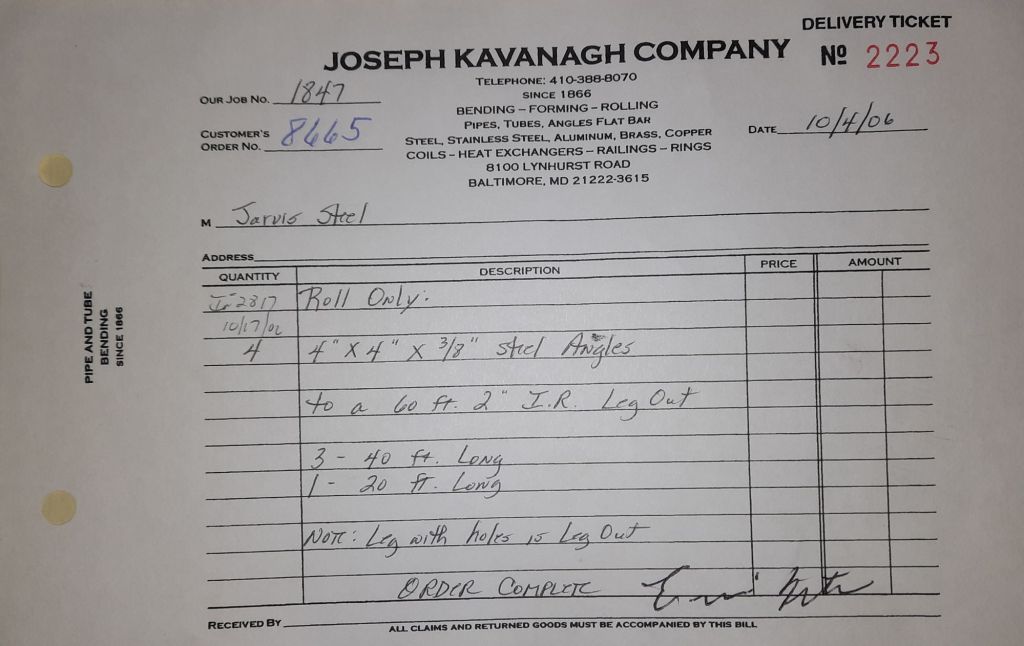 DELIVERY TICKET
JOSEPH KAVANAGH COMPANY
Nº 2223
TELEPHONE: 410-388-8070
SINCE 1866
BENDING – FORMING – ROLLING
PIPES, TUBES, ANGLES FLAT BAR
STEEL, STAINLESS STEEL, ALUMINUM, BRASS, COPPER
COILS – HEAT EXCHANGERS – RAILINGS – RINGS
8100 LYNHURST ROAD
BALTIMORE, MD 21222-3615
OUR JOB NO. 1847
CUSTOMER'S
ORDER NO. 8665
DATE 10/4/06
M Jarvis Steel
ADDRESS
QUANTITY DESCRIPTION PRICE AMOUNT
I-2817 Roll Only:
10/17/06
4 4" X 4" X 3/8" Steel Angles
to a 60 ft. 2" I.R. Leg Out
3 - 40 ft. Long
1 - 20 ft. Long
Note: Leg with holes is Leg Out
ORDER COMPLETE
RECEIVED BY
ALL CLAIMS AND RETURNED GOODS MUST BE ACCOMPANIED BY THIS BILL
PIPE AND TUBE
BENDING
SINCE 1866